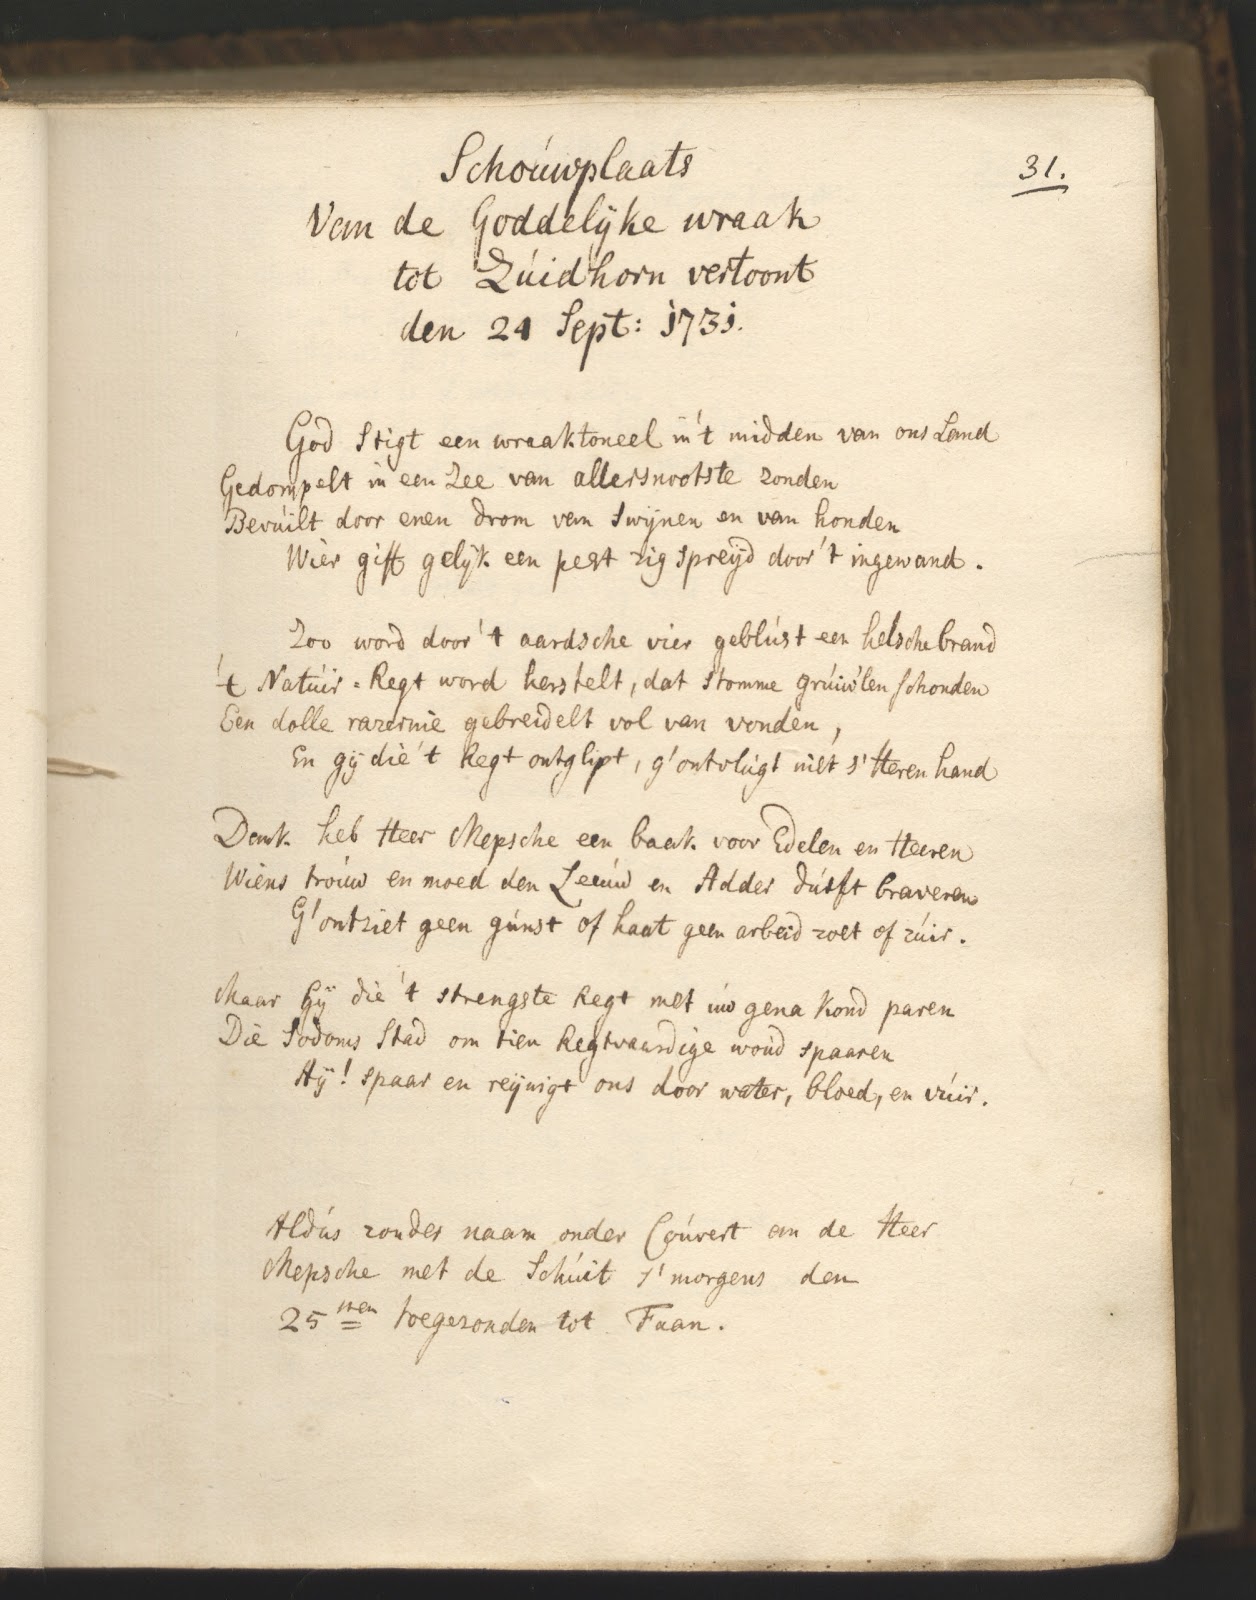 Schouwplaats
31.
Van de Goddelijke wraak
tot Zuidhorn vertoont
den 24 Sept: 1731.
God stigt een wraaktoneel in 't midden van ons Land
Gedompelt in een Zee van allersnootste zonden
Bevuilt door enen drom van swijnen en van honden
Wier gift gelijk een pest zig spreijd door 't ingewand.
Zoo word door 't aardsche vier geblust een helsche brand
't Natuir-Regt word herstelt, dat stomme gruiw'len schonden
Een dolle razernie gebreidelt vol van vonden,
En gij die 't Regt ontglipt, g'ontvlugt niet s'Heren hand
Dank heb Heer Mepsche een baak voor Edelen en Heeren
Wiens trouw en moed den Leeuw en Adder durft braveren
G'ontziet geen gunst of haat geen arbeid zoet of zuir.
Maar Gij die 't strengste Regt met uw gena kond paren
Die Sodoms Stad om tien Regtvaardige woud spaaren
Aij! spaar en reijnigt ons door water, bloed, en vuir.
Aldus zonder naam onder Couvert an de Heer
Mepsche met de Schuit s'morgens den
25sten toegezonden tot Faan.